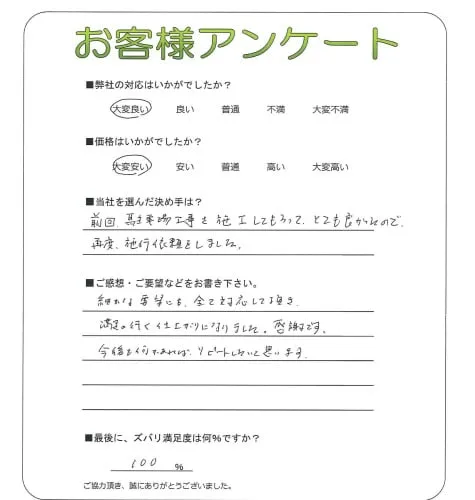 お客様アンケート
■弊社の対応はいかがでしたか？
大変良い 良い 普通 不満 大変不満
■価格はいかがでしたか？
大変安い 安い 普通 高い 大変高い
■当社を選んだ決め手は？
前回、駐車場工事を施工してもらって、とても良かったので、
再度、施行依頼をしました。
■ご感想・ご要望などをお書き下さい。
細かな要望にも、全て対応して頂き、
満足の行く仕上がりになりました。感謝です。
今後も何かあれば、リピートしたいと思います。
■最後に、ズバリ満足度は何％ですか？
100 ％
ご協力頂き、誠にありがとうございました。